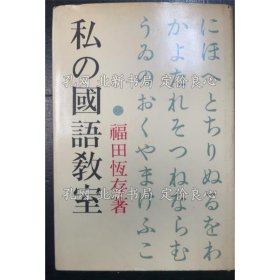 私の國語敎室
●福田恆存著
にほへとちりぬるをわ
かよたれそつねならむ
うゐのおくやまけふこ
孔网 北新书局 定价良心
孔网 北新书局 定价良心
孔网 北新书局 定价良心